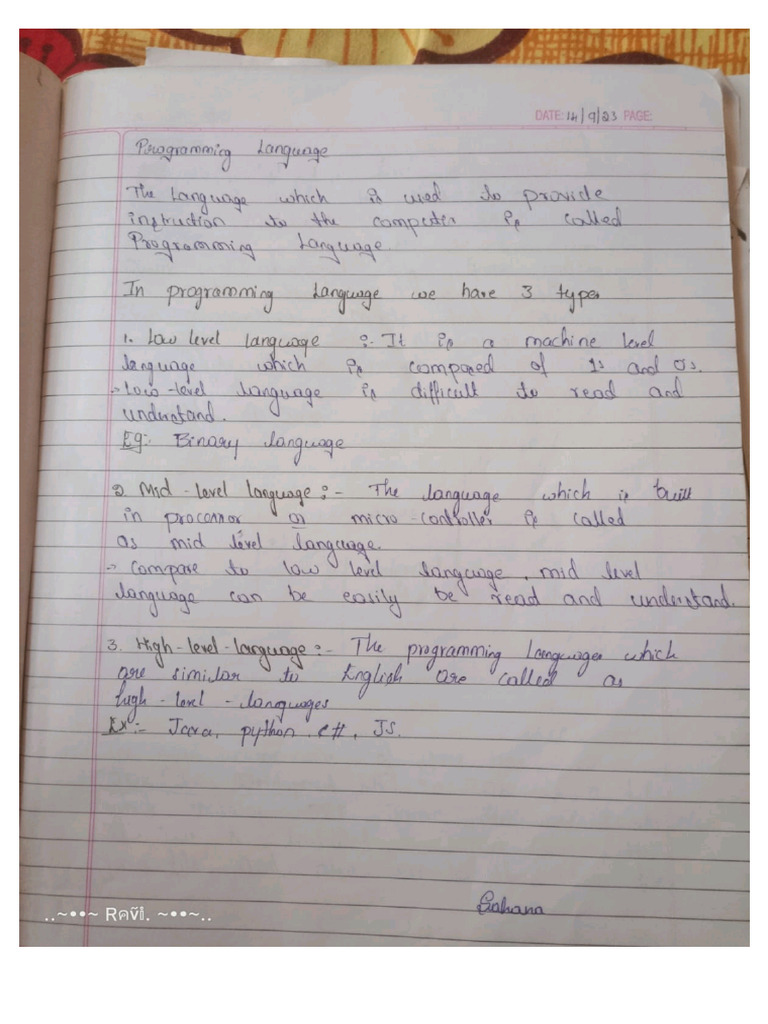 DATE: 14/9/23 PAGE:
Programming Language
The Language which is used to provide
instruction to the computer is called
Programming Language.
In programming Language we have 3 types
1. Low level language :- It is a machine level
language which is compared of 1s and 0s.
→ Low-level language is difficult to read and
understand.
Eg:- Binary language
2. Mid-level language :- The language which is built
in processor or micro-controller is called
as mid level language.
→ Compare to low level language, mid level
language can be easily be read and understand.
3. High-level-language :- The programming Languages which
are similar to English are called as
high-level-languages
Ex:- Java, python. c#, JS.
..~••~ Rคvึi. ~••~..